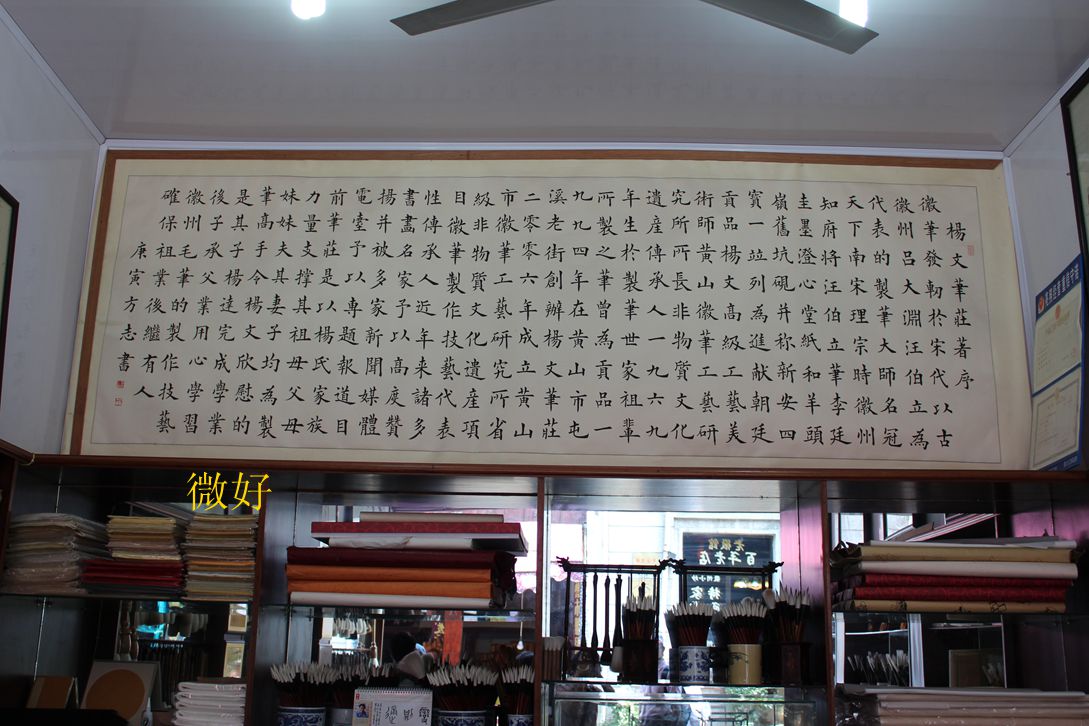 楊文筆莊著序
徽筆發軔於宋代以古
徽州呂大淵汪伯立為
代表的製筆大師名冠
天下南宋理宗時徽州
知府將汪伯立筆李廷
圭墨澄心堂紙和羊頭
嶺舊坑硯并祢新安四
寶一竝列為進献朝廷
貢品楊文高級工藝美
術師黃山徽筆工藝研
究所所長非物質文化
遺產傳承人一九六九
年生於製筆世家祖輩
所製之筆曾為貢品一
九九四年在黃山市屯
溪老街創辦楊文筆莊
二零零六年成立黃山
市徽筆工藝研究所省
級非物質文化遺產項
目徽筆製作技藝代表
性傳承人近年來諸多
書畫名家予以高度贊
揚并被多家新聞媒體
電臺予以專題報道目
前筆莊是以楊氏家族
力量支撐其祖毋父母
妹妹夫其妻子均為製
筆高手今楊文欣慰的
是其子楊達完成學業
後子承父業用心學習
徽州毛筆的製作技藝
確保祖業後繼有人
庚寅方志書
微好
老徽館
百年老店